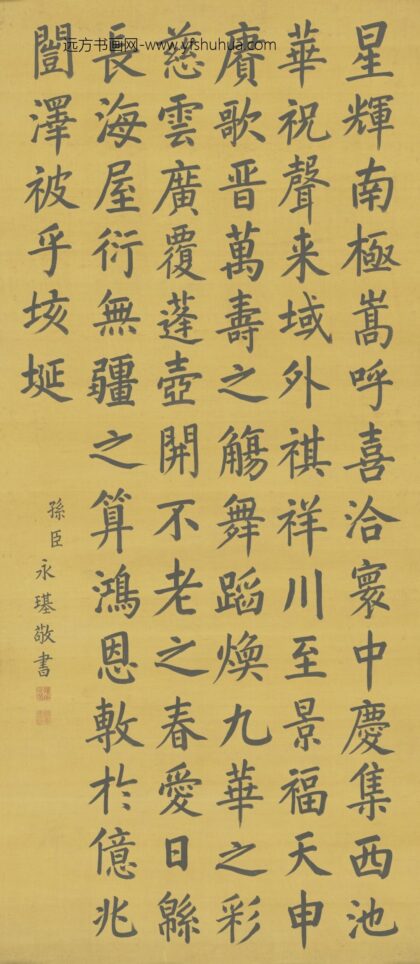 远方书画网-www.yfshuhua.com
星輝南極嵩呼喜洽寰中慶集西池
華祝聲来域外祺祥川至景福天申
賡歌晋萬壽之觴舞蹈煥九華之彩
慈雲廣覆蓬壺開不老之春愛日緜
長海屋衍無疆之算鴻恩敷於億兆
闓澤被乎垓埏
孫臣永璂敬書